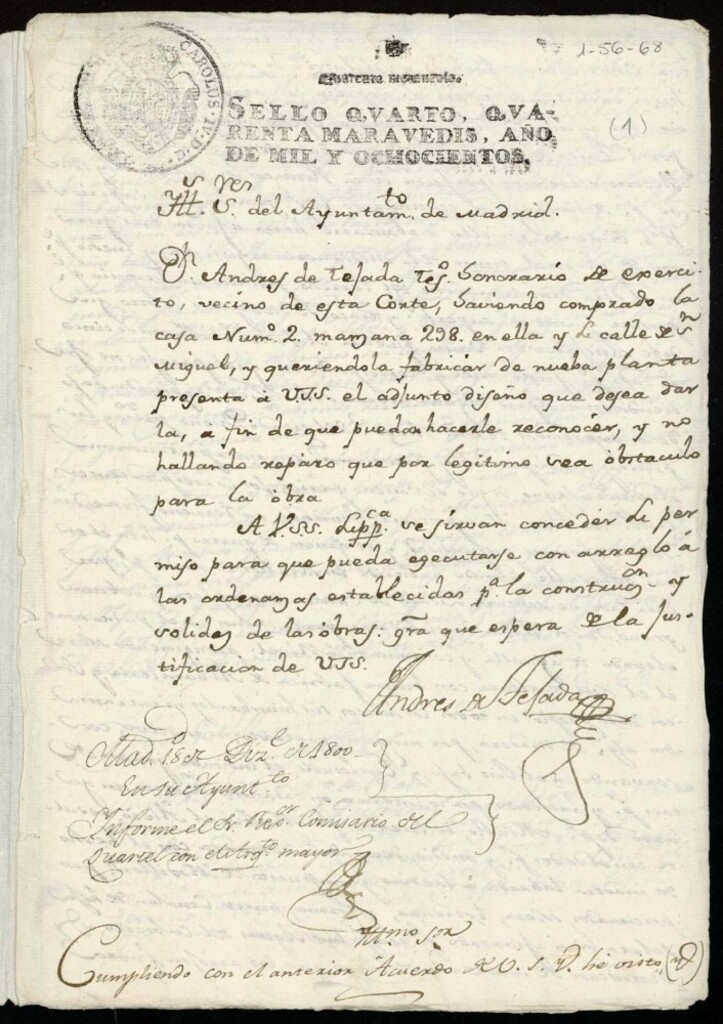 1-56-68
(1)
CAROLUS IV D. G.
Quarenta maravedis.
SELLO QVARTO, QVA-
RENTA MARAVEDIS, AÑO
DE MIL Y OCHOCIENTOS.
s.res
Ill. S. del Ayuntam.to de Madrid.
D.n Andres de Tejada Tes.o honorario de exerci-
to, vecino de esta Corte, haviendo comprado la
casa Num.o 2. manzana 298. en ella y de calle de S.n
Miguel, y queriendola fabricar de nueba planta
presenta á V.S.S. el adjunto diseño que desea dar
la, a fin de que puedan hacerle reconocer, y no
hallando reparo que por legitimo sea obstaculo
para la obra
A V.S.S. sup.ca se sirvan conceder le per
miso para que pueda egecutarse con arreglo á
las ordenanzas establecidas p.a la construc.on y
solidez de las obras: gra que espera de la Jus-
tificacion de VSS.
Andres de Tejada
Mad.d 18 de Juz.l de 1800
En su Ayunt.to
Informe el Sr. Reg.or Comisario del
Quartel con el mayor
Illmo Sor
Cumpliendo con el anterior Acuerdo de V. S. Y. he visto,